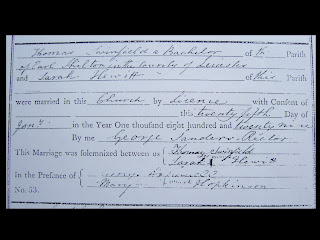 Thomas Swinfield a Bachelor of the Parish
of Earl Shilton in the County of Leicester
and Sarah Hewitt of this Parish
were married in this Church by Licence with Consent of
this twenty fifth Day of
Jany. in the Year One thousand eight hundred and twenty nine
By me George Sanders Rector
This Marriage was solemnized between us Thomas Swinfield
Sarah Hewitt
In the Presence of
Mary Hopkinson
No. 53.